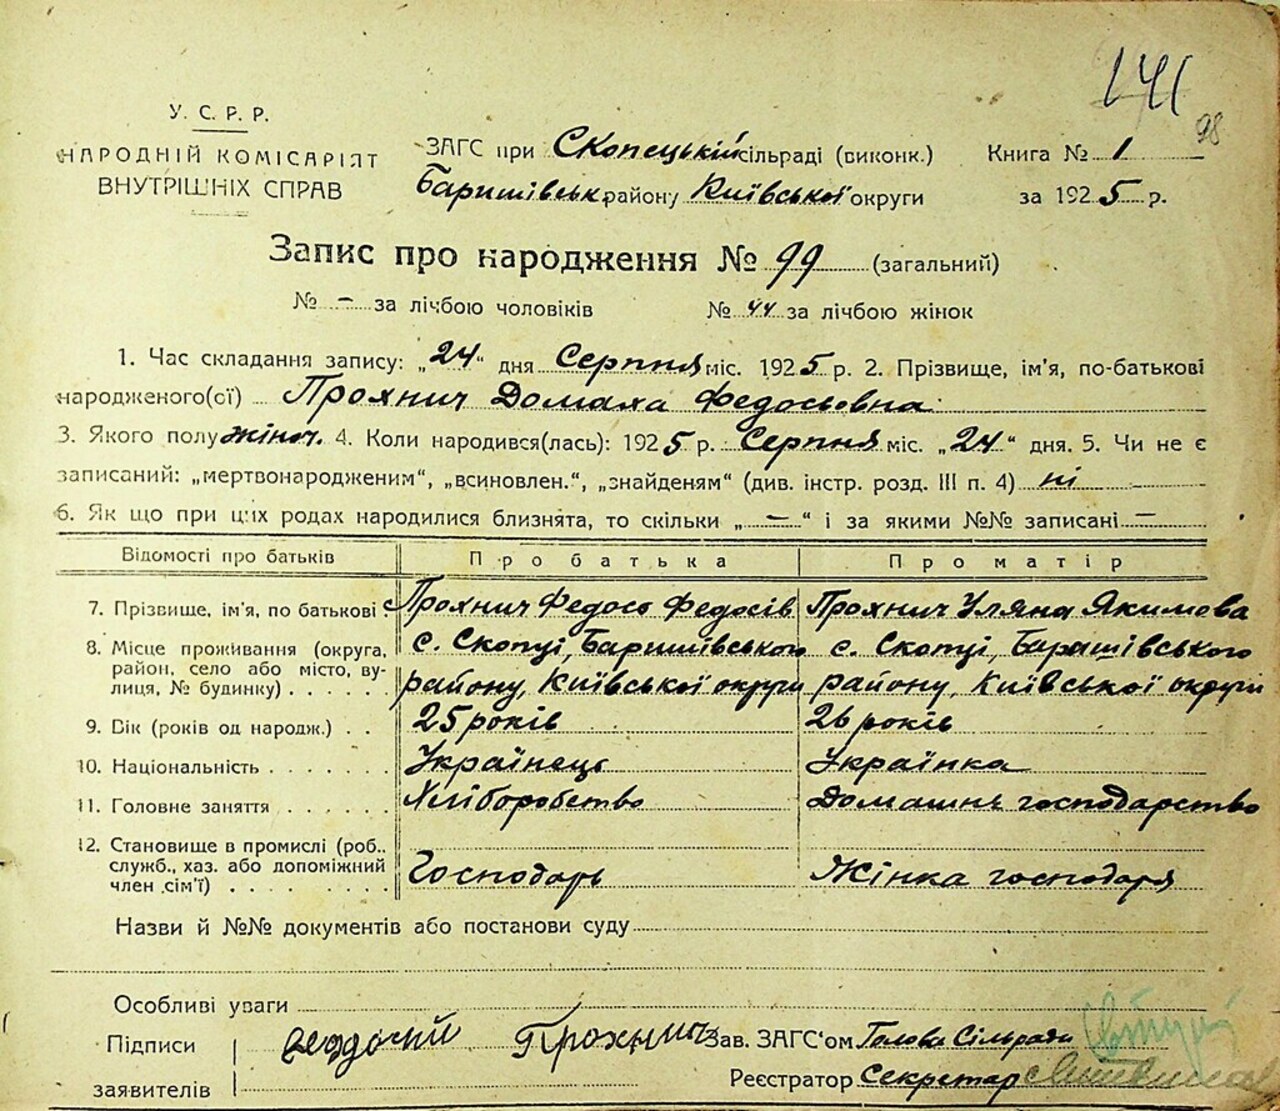 141
98
У. С. Р. Р.
НАРОДНІЙ КОМІСАРІЯТ
ВНУТРІШНІХ СПРАВ
ЗАГС при Скопецькій сільраді (виконк.) Книга № 1
Баришівськ. району Київської округи за 1925 р.
Запис про народження № 99 (загальний)
№ – за лічбою чоловіків № 44 за лічбою жінок
1. Час складання запису: „24“ дня Серпня міс. 1925 р. 2. Прізвище, ім'я, по-батькові
народженого(ої) Прохнич Домаха Федосьовна
3. Якого полу жіноч. 4. Коли народився(лась): 1925 р. Серпня міс. „24“ дня. 5. Чи не є
записаний: „мертвонародженим“, „всиновлен.“, „знайденям“ (див. інстр. розд. III п. 4) ні
6. Як що при цих родах народилися близнята, то скільки „–“ і за якими №№ записані –
Відомості про батьків Про батька Про матір
7. Прізвище, ім'я, по батькові Прохнич Федось Федосів Прохнич Уляна Якимова
8. Місце проживання (округа, с. Скопці, Баришівського с. Скопці, Баришівського
район, село або місто, ву-
лиця, № будинку) району, Київської округи району, Київської округи
9. Вік (років од народж.) 25 років 26 років
10. Національність Українець Українка
11. Головне заняття Хліборобство Домашнє господарство
12. Становище в промислі (роб.,
служб., хаз. або допоміжний
член сім'ї) Господарь Жінка господаря
Назви й №№ документів або постанови суду
Особливі уваги
Підписи Прохнич Зав. ЗАГС'ом Голова Сільради
заявителів Реєстратор Секретар